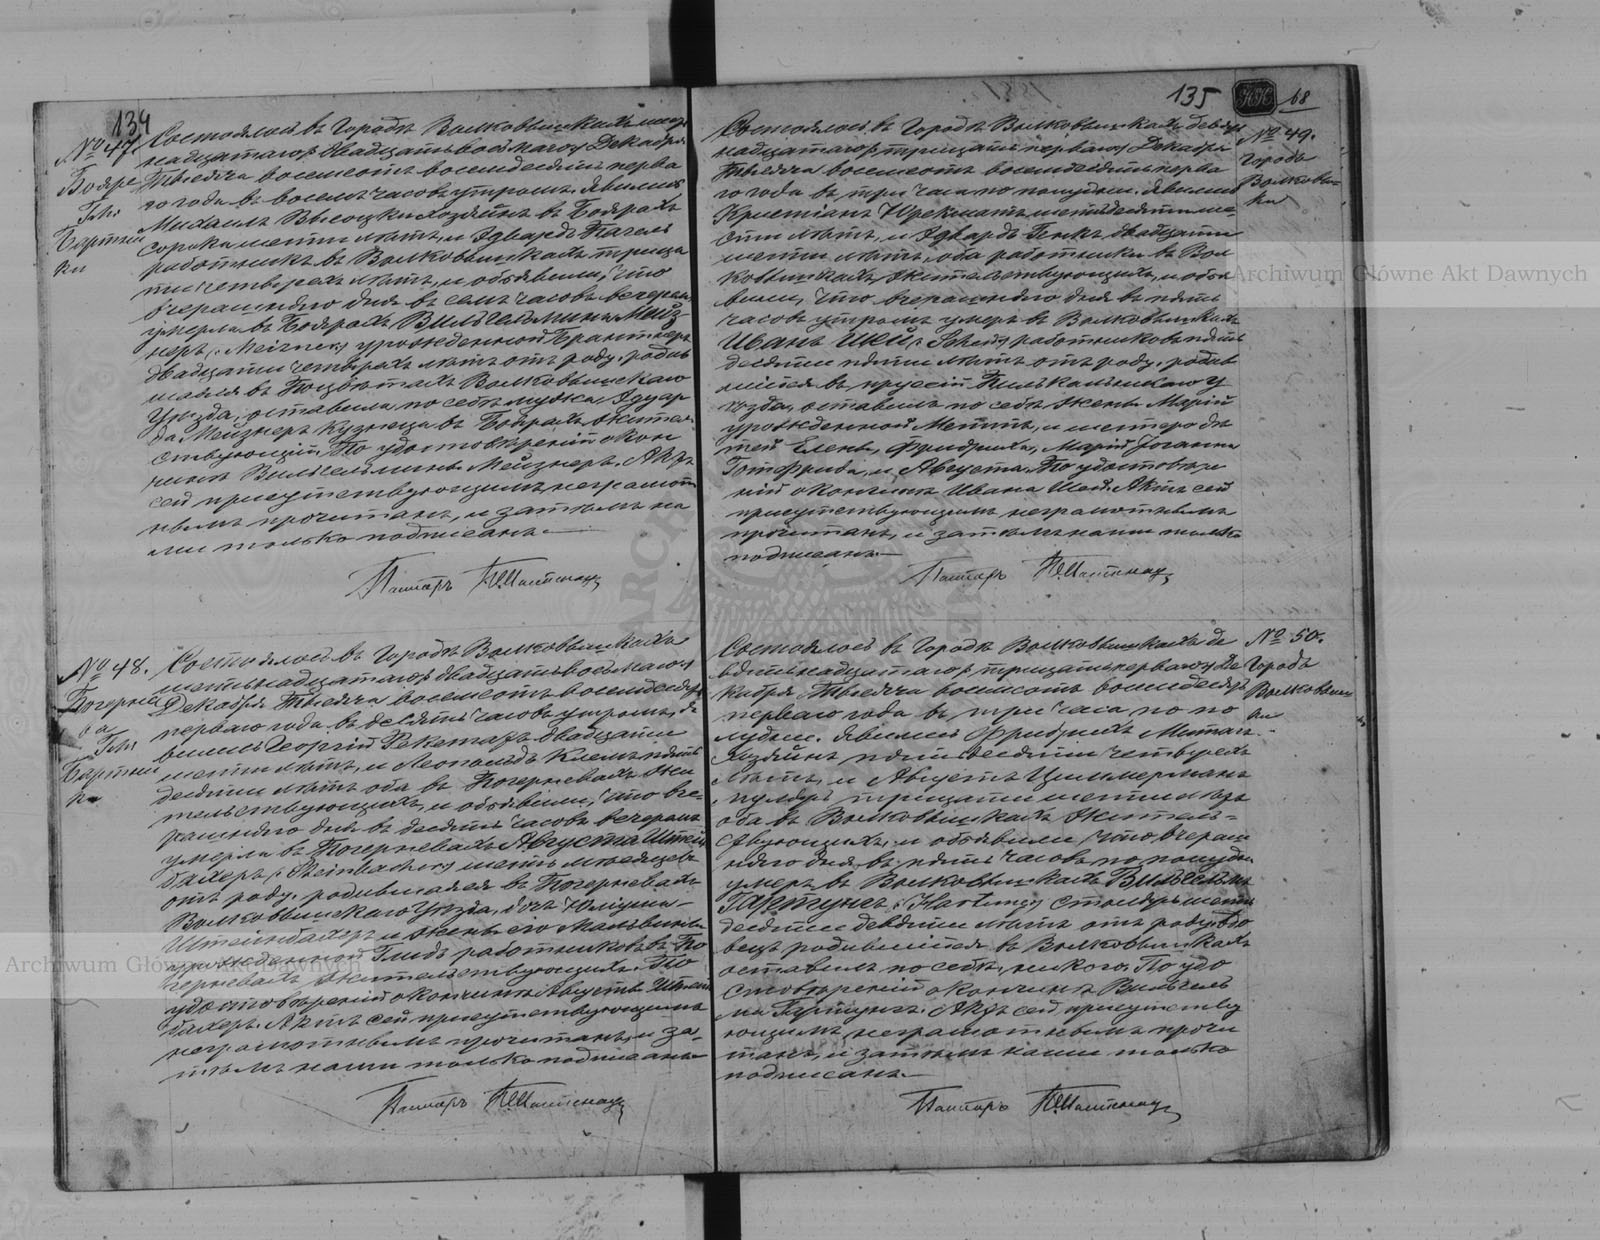 134
№ 47.
Бояре
Гми
Бартни
ки
Состоялось въ Городѣ Волковышкахъ шест
надцатаго/двадцать восьмаго/ Декабря
Тысяча восемсотъ восемдесятъ перва
го года въ восемь часовъ утромъ. Явились
Михаилъ Высоцки хозяинъ въ Боярахъ
сорока шести лѣтъ, и Эдвардъ Нагель
работникъ въ Волковышкахъ трица
ти четырехъ лѣтъ, и объявили, что
вчерашняго дня въ семь часовъ вечеромъ
умерла въ Боярахъ Вильгельмина Мейз-
неръ /: Meizner :/ урожденной Брантнеръ
двадцати четырехъ лѣтъ отъ роду, родив
шаяся въ Волковышскаго
Уѣзда, оставила по себѣ мужа, Эдуар
да Мейзнеръ кузнеца въ Боярахъ жител-
ствующій. По удостовѣреніи о кон
чинѣ Вильгельмины Мейзнеръ. Актъ
сей присутствующимъ неграмот
нымъ прочитанъ, и затѣмъ на
ми только подписанъ.—
Пасторъ
№ 48.
Погерне
ва
Гми
Бартни
ки
Состоялось въ Городѣ Волковышкахъ
шестьнадцатаго/двадцать восьмаго/
Декабря Тысяча восемсотъ восемдесятъ
перваго года въ девять часовъ утромъ, Я
вились Георгій Рекетатъ двадцати
шести лѣтъ, и Леопольдъ Клемъ пять
десяти лѣтъ оба въ Погерневахъ жи
тельствующихъ, и объявили, что вче-
рашняго дня въ десять часовъ вечеромъ
умерла въ Погерневахъ Августа Штейн
бахеръ /: Steinbacher :/ шесть мѣсяцевъ
отъ роду, родившаяся въ Погерневахъ
Волковышскаго Уѣзда, дочь Юліуша
Штейнбахеръ и жены его Мальвины
урожденной Глидъ работниковъ въ По
герневахъ жительствующихъ. По
удостовѣреніи о кончинѣ Августы Штейн
бахеръ. Актъ сей присутствующимъ
неграмотнымъ прочитанъ, и за-
тѣмъ нами только подписанъ.
Пасторъ
135
68
№ 49.
Городъ
Волковыш-
ки
Состоялось въ Городѣ Волковышкахъ девят
надцатаго/тридцать перваго/ Декабря
Тысяча восемсотъ восемдесятъ перва
го года въ три часа по полудни. Явились
Кристіанъ шестьдесяти ше-
сти лѣтъ, и Эдвардъ Генкъ двадцати
шести лѣтъ, оба работники въ Вол
ковышкахъ жительствующихъ, и объя
вили, что вчерашняго дня въ пять
часовъ утромъ умеръ въ Волковышкахъ
Иванъ Шей /: Schei :/ работникъ пять
десяти пяти лѣтъ отъ роду, родив
шійся въ пруссіи Пилькаленскаго У
ѣзда, оставилъ по себѣ жену Марію
урожденной и шестеро дѣ
тей Елену, Фридриха, Марію Іоганна
Готфрида, и Августа. По удостовѣре
ніи о кончинѣ Ивана Шей. Актъ сей
присутствующимъ неграмотнымъ
прочитанъ, и затѣмъ нами только
подписанъ.—
Пасторъ
№ 50.
Городъ
Волковыш
ки
Состоялось въ Городѣ Волковышкахъ де
вятьнадцатаго/тридцать перваго/ Де
кабря Тысяча восемсотъ восемдесятъ
перваго года въ три часа по по
лудни. Явились Фридрихъ
хозяинъ пятьдесяти четырехъ
лѣтъ, и Августъ Циммерманъ
трицати шести лѣтъ
оба въ Волковышкахъ житель-
ствующихъ, и объявили что вчераш
няго дня въ пять часовъ по полудни
умеръ въ Волковышкахъ Вильгельмъ
Гартунгъ /: Hartung :/ столяръ шесть
десяти девяти лѣтъ отъ роду, вдо
вецъ родившійся въ Волковышкахъ
оставилъ по себѣ, никого. По удо
стовѣреніи о кончинѣ Вильгель
ма Гартунгъ. Актъ сей присутству
ющимъ неграмотнымъ прочи
танъ, и затѣмъ нами только
подписанъ.—
Пасторъ
Archiwum Główne Akt Dawnych
Archiwum Główne Akt Dawnych